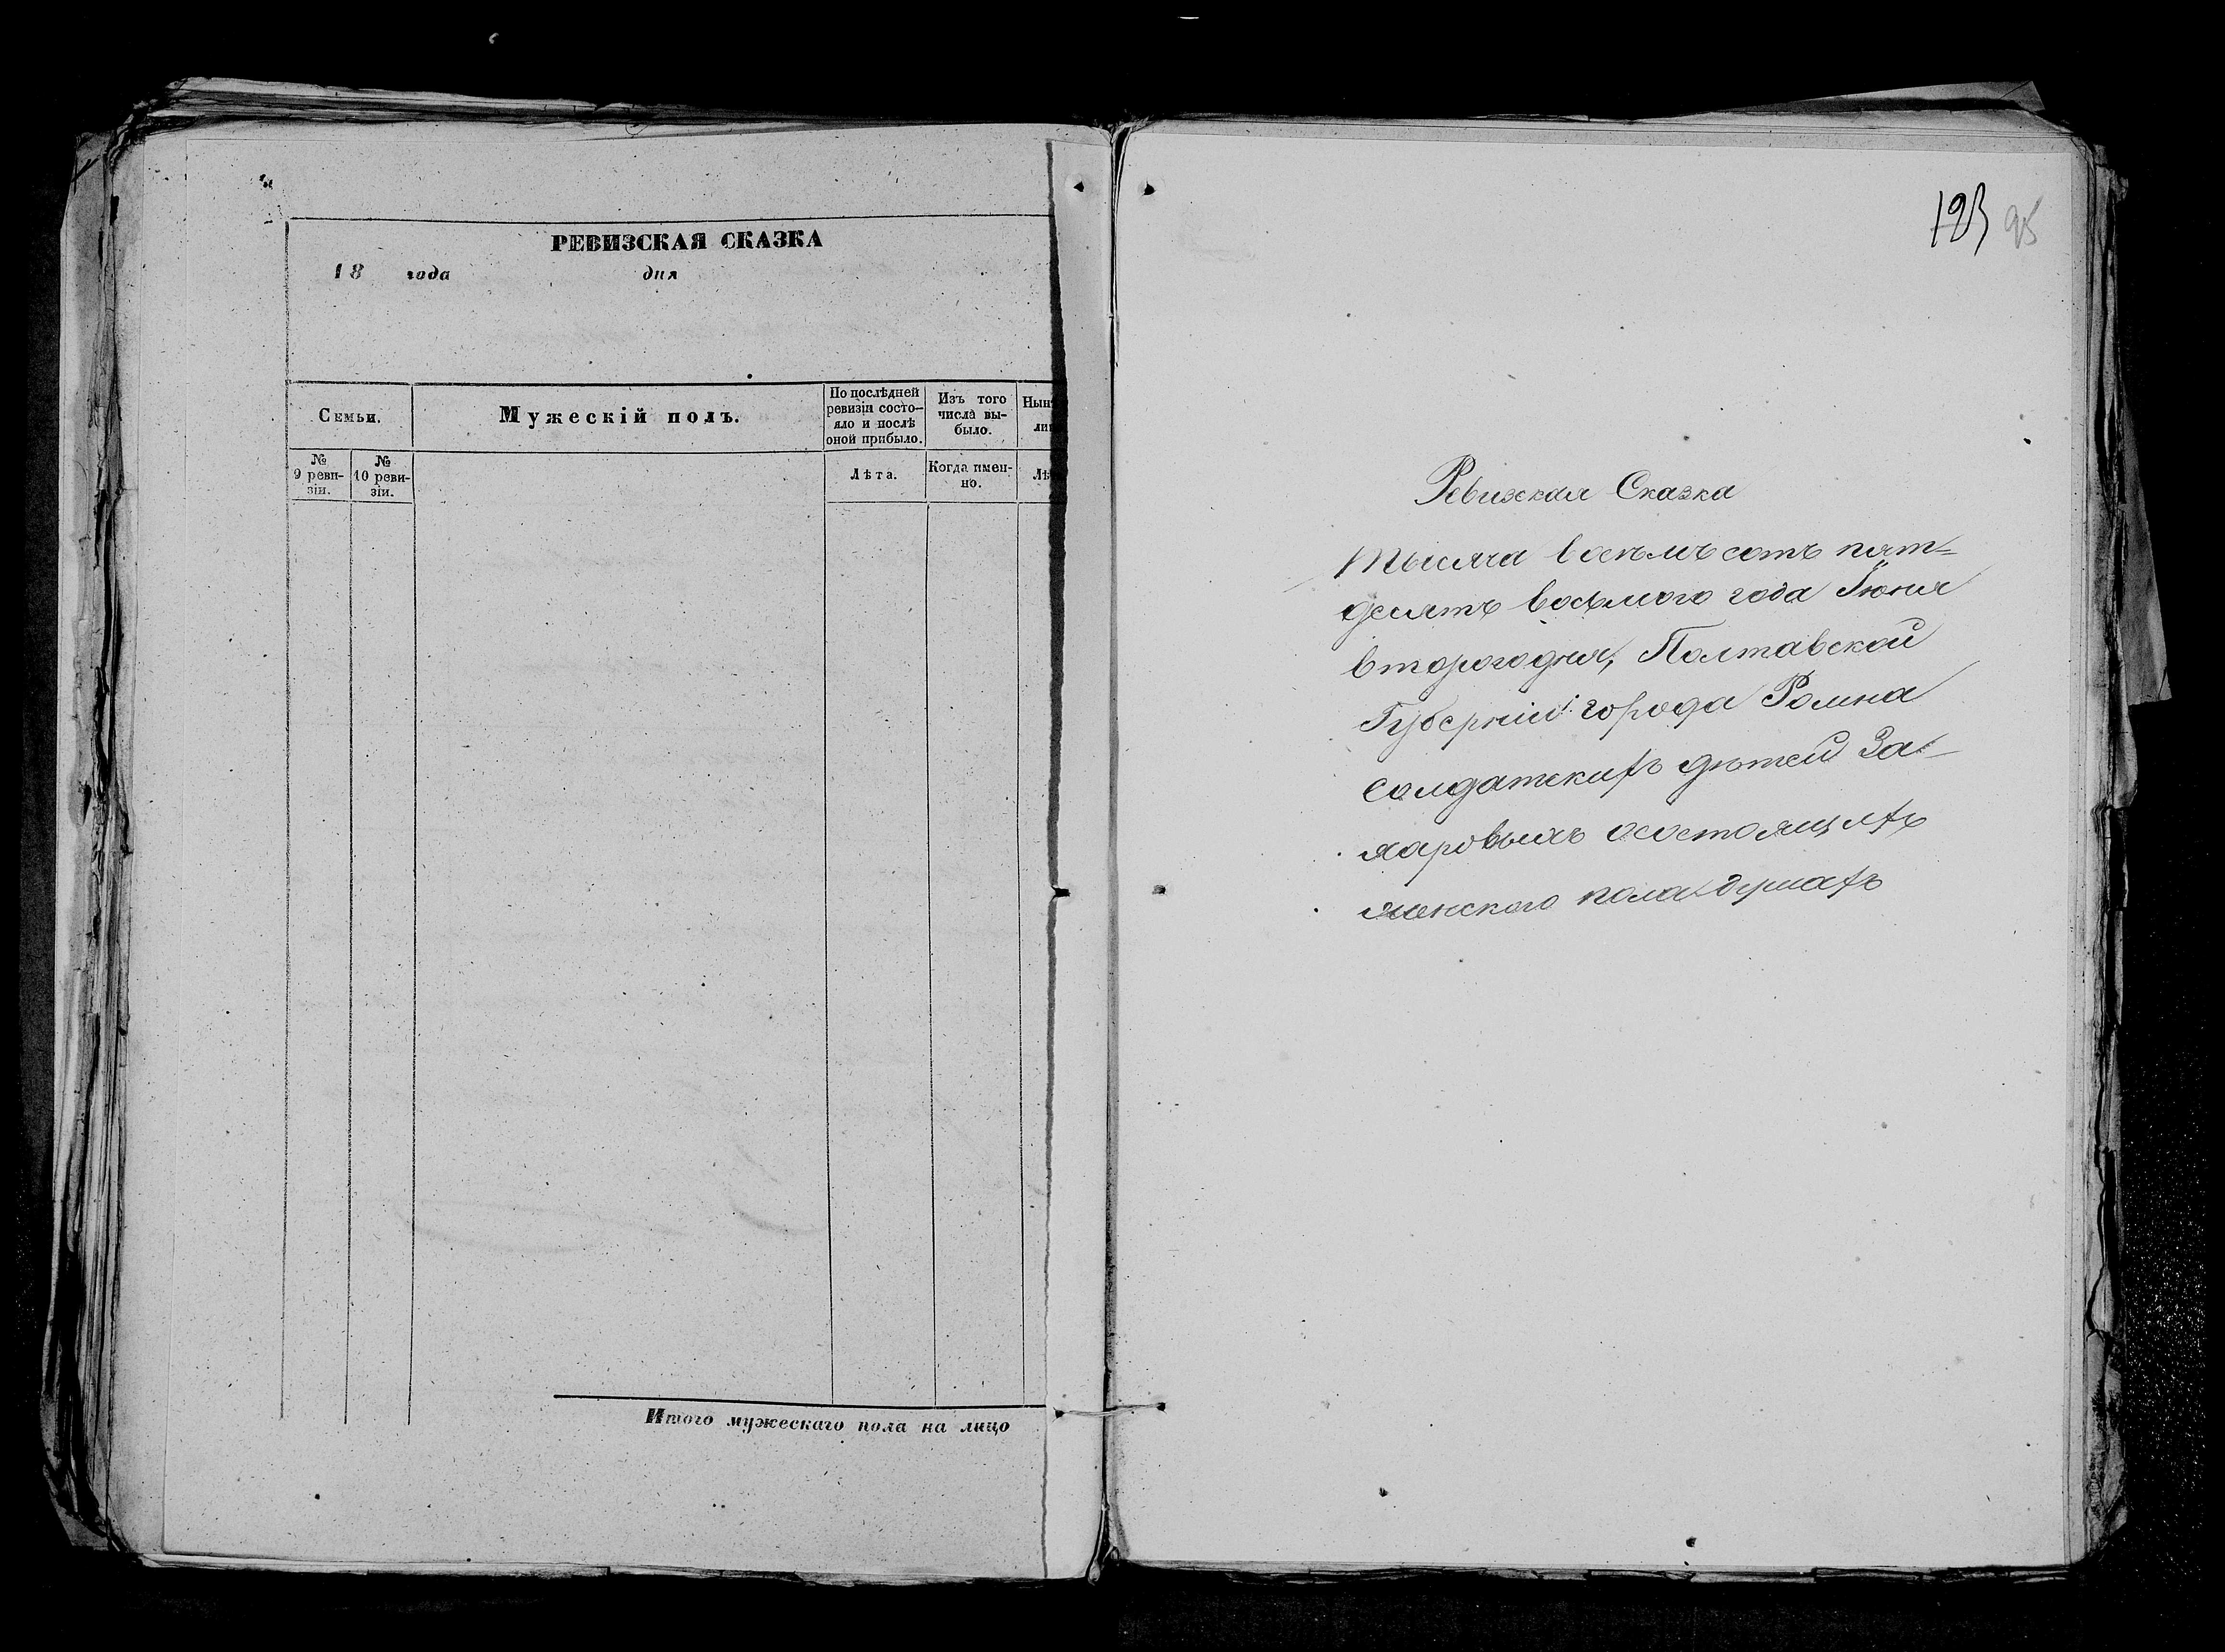 РЕВИЗСКАЯ СКАЗКА
18 года дня
Семьи.
Мужескій полъ.
По послѣдней
ревизіи состо-
яло и послѣ
оной прибыло.
Изъ того
числа вы-
было.
№
9 реви-
зіи.
№
10 реви-
зіи.
Лѣта.
Когда имен-
но.
Итого мужескаго пола на лицо
123 95
Ревизская Сказка
Тысяча восемъ сотъ пят=
десятъ восьмого года Іюня
второго дня, Полтавской
Губерніи города Ромна
Солдатскихъ дѣтей За-
харовыхъ осостоящихъ
женского пола душахъ